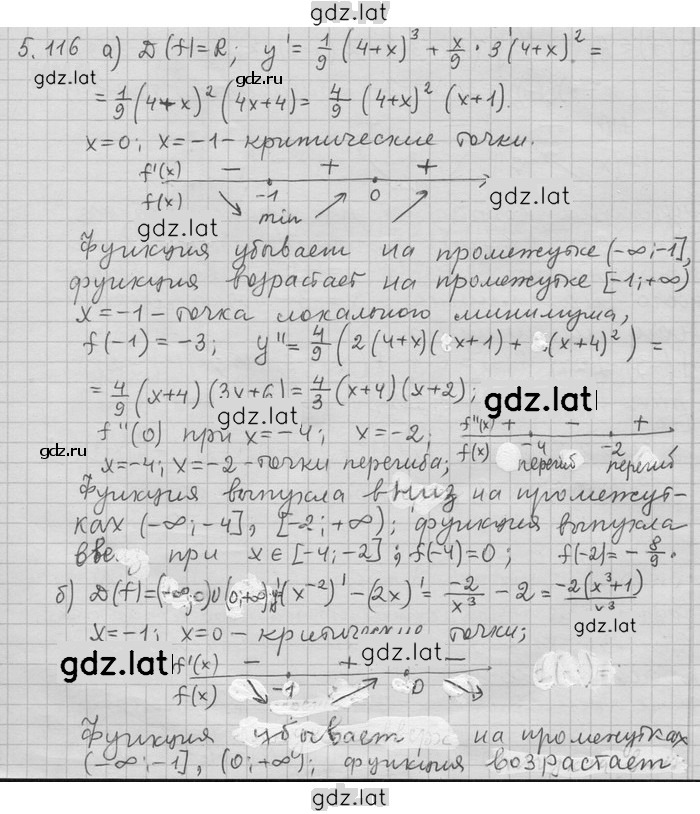 gdz.lat
5.116 а) D(f)=R; y' = 1/9 (4+x)^3 + x/9 · 3(4+x)^2 =
gdz.lat
= 1/9 (4+x)^2 (4x+4) = 4/9 (4+x)^2 (x+1).
x=0; x=-1 - критические точки.
f'(x) − + +
f(x) -1 min 0
gdz.lat gdz.lat
Функция убывает на промежутке (-∞;-1],
функция возрастает на промежутке [-1;+∞)
x=-1 - точка локального минимума,
f(-1) = -3; y'' = 4/9 (2(4+x)(x+1) + (x+4)^2) =
= 4/9 (x+4)(3x+6) = 4/3 (x+4)(x+2);
gdz.lat gdz.lat
f''(0) при x=-4; x=-2; f''(x) + − +
f(x) -4 перегиб -2 перегиб
gdz.lat
x=-4; x=-2 - точки перегиба;
Функция выпукла вниз на промежут-
ках (-∞;-4], [-2;+∞); функция выпукла
при x∈[-4;-2]; f(-4)=0; f(-2)=-8/9.
б) D(f)=(-∞;0)∪(0;+∞); y'(x^-2)' - (2x)' = -2/x^3 - 2 = -2(x^3+1)/x^3
gdz.lat
x=-1; x=0 - критические точки;
gdz.lat gdz.lat
f'(x) − + −
f(x) -1 0
Функция убывает на промежутках
(-∞;-1], (0;+∞); функция возрастает
gdz.lat